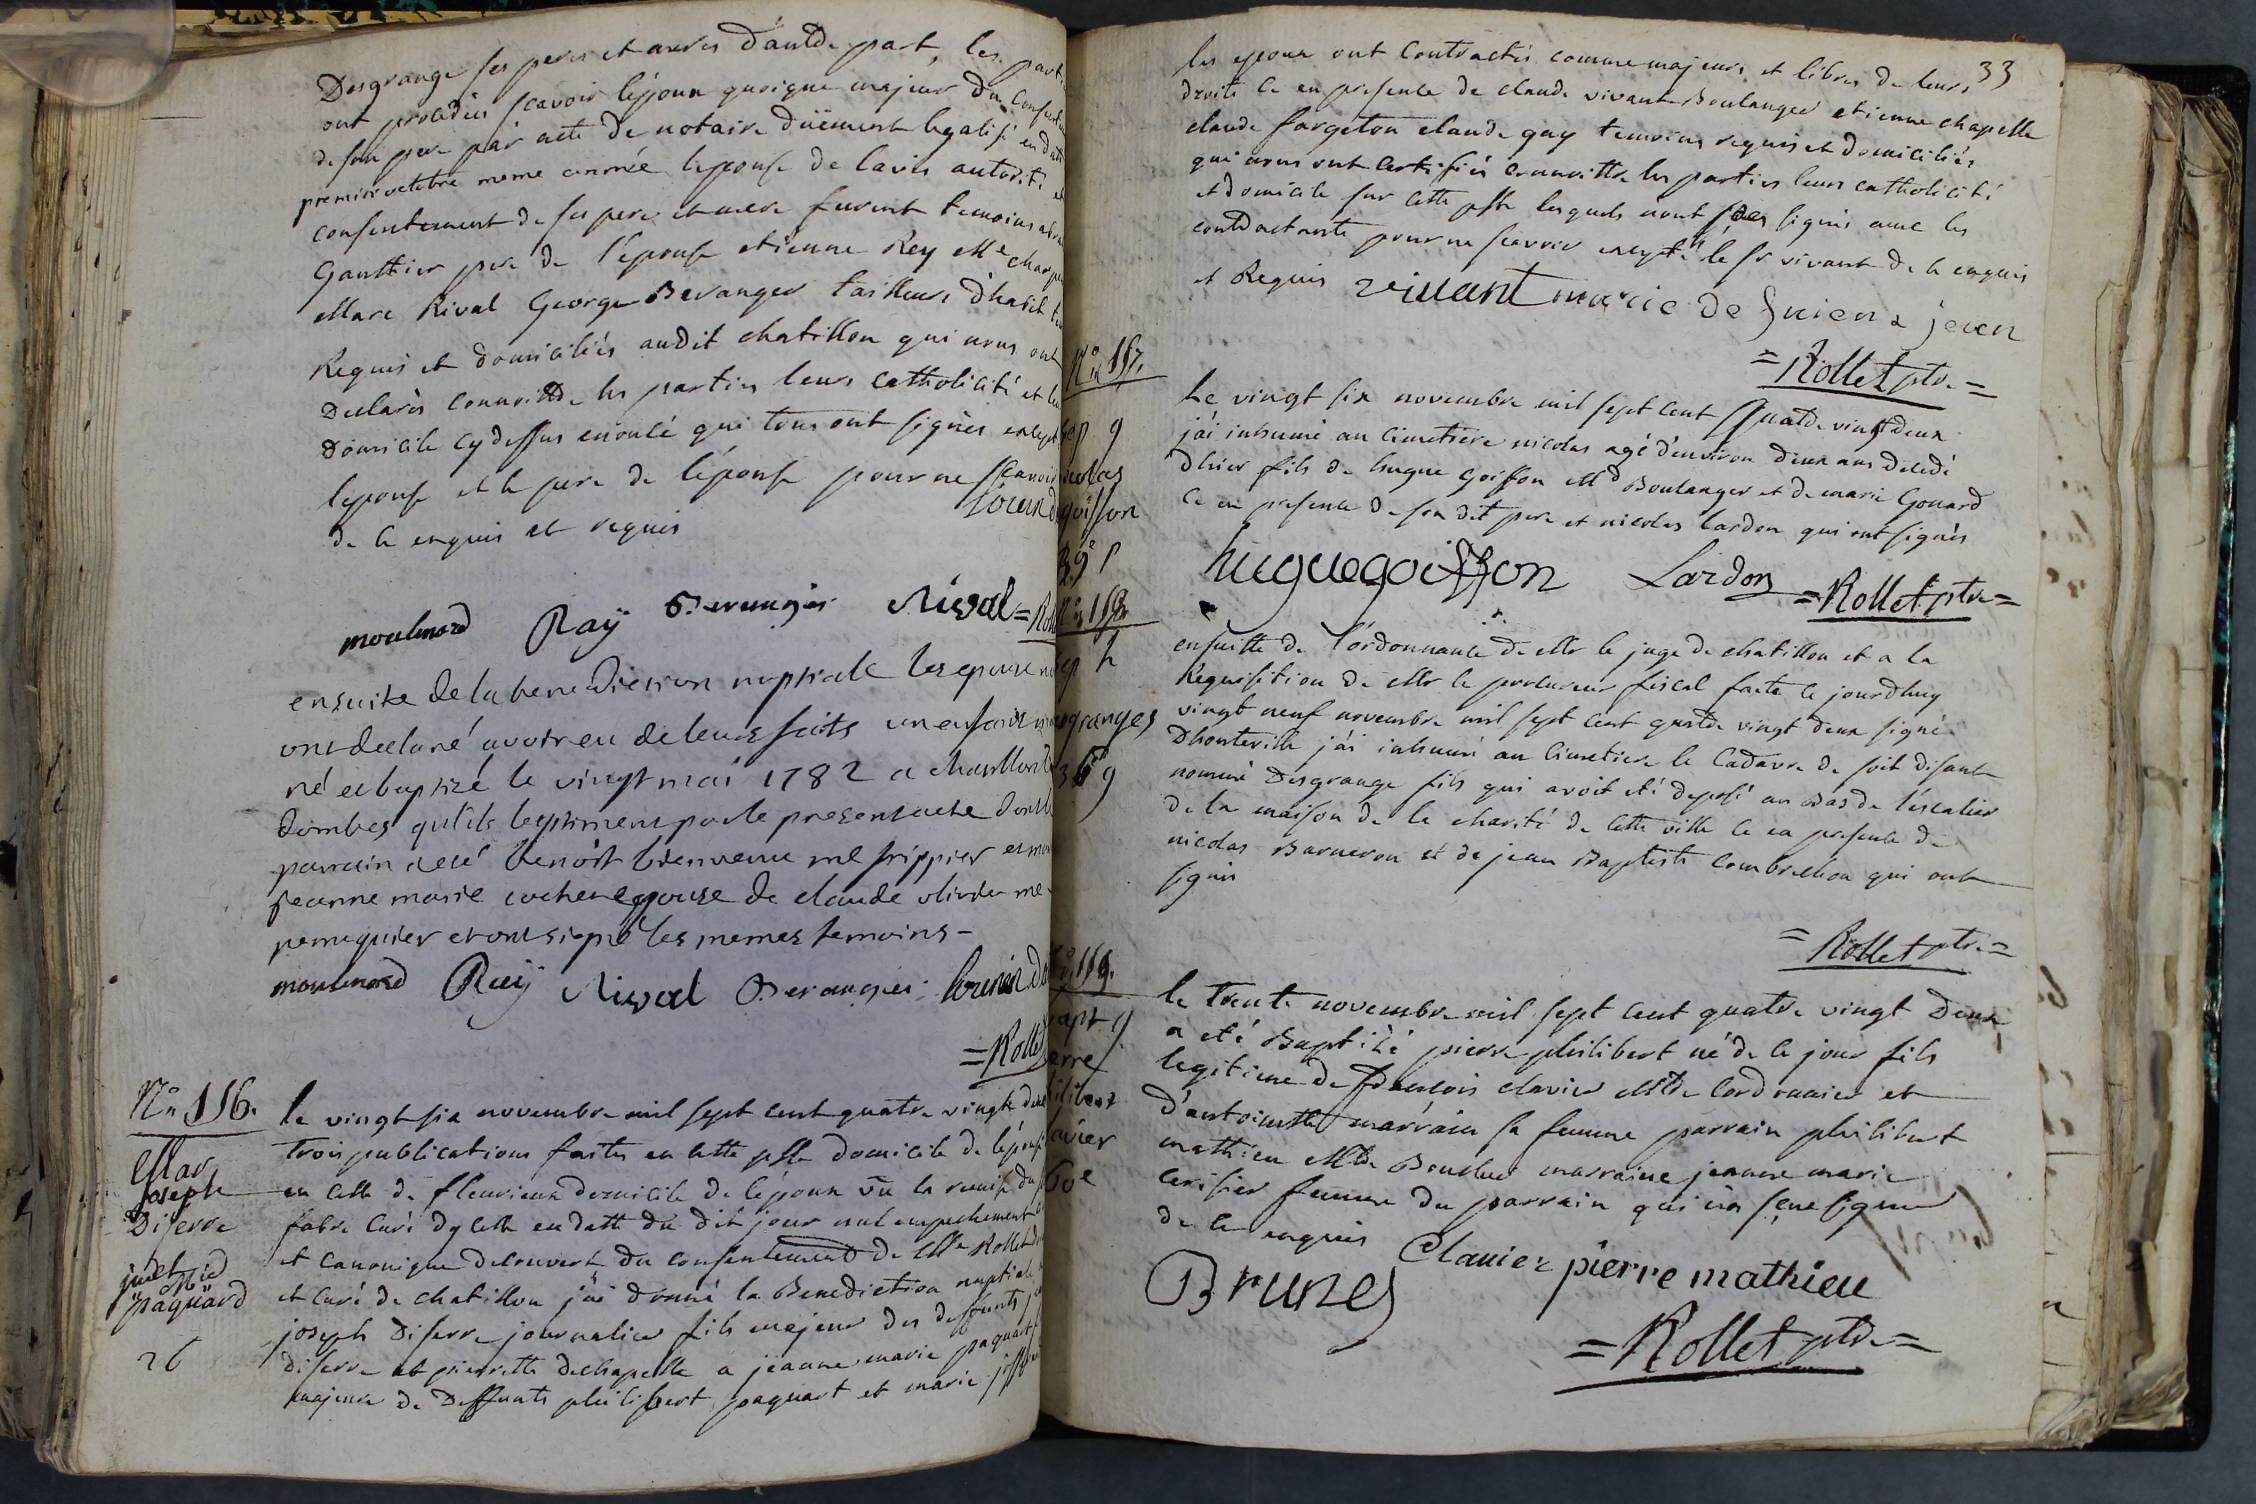 Desgrange ses pere et mere d'autre part, les parti
ont procedés scavoir l'epoux quoique majeur du consent
de son pere par acte de notaire düement legalisé en datte
premier octobre meme année l'epouse de l'avis autorité et
consentement de ses pere et mere furent temoins
Gauthier pere de l'epouse etienne Rey Me charp
Marc Rival George Beranger tailleurs d'habit
Requis et domiciliés audit chatillon qui nous ont
Declarés connoittre les parties leurs catholicité et
Domicile cydessus enoncé qui tous ont signés except
l'epouse et le pere de l'epouse pour ne scavoir
de ce enquis et requis
moulinard Raÿ Beranger Rival =Roll
ensuite de la benediction nuptiale les epoux
ont declaré avoir eu de leurs faits un enfant
né et baptizé le vingt mai 1782 a chatillon
dombes qu'ils legitiment par le present acte dont le
parrain a eté benoit bienvenu me frippier et
jeanne marie cochet epouse de claude olivier me
perruquier et ont signé les memes temoins –
moulinard Raÿ Rival Beranger
=Rollet
No 116.
Mar
joseph
Diserre
et
paquard
26
le vingt six novembre mil sept cent quatre vingt deux
trois publications faites en cette psse domicile de l'epouse
en celle de fleurieux domicile de l'epoux vû la remise du
fabre curé dycelle en datte du dit jour nul empechement
et canonique decouvert du consentement de Mre Rollet
et curé de chatillon j'ai donné la Benediction nuptiale
joseph Diserre journalier fils majeur des deffunts
diserre et pierrette dechapelle a jeanne marie paquart
majeure de Deffunts philibert paquart et marie
33
les epoux ont contractés comme majeurs et libres de leurs
droits ce en presence de claude vivant Boulanger etienne chapelle
claude fargeton claude guy temoins requis et domiciliés
qui nous ont certifiés connoittre les parties leurs catholicité
et domicile sur cette psse lesquels n'ont signés avec les
contractants pour ne scavoir excepté le sr vivant de ce enquis
et Requis vivant
=Rollet ptre=
No 117.
sep 9
nicolas
goisson
le vingt six novembre mil sept cent quatre vingt deux
j'ai inhumé au cimetiere nicolas agé d'environ deux ans decedé
d'hier fils de hugue goisson Md Boulanger et de marie Gonard
ce en presence de son dit pere et nicolas Lardon qui ont signés
huguegoisson Lardon =Rollet ptre=
No 118
desgranges
ensuitte de l'ordonnance de Mr le juge de chatillon et a la
Requisition de Mr le procureur fiscal faite ce jourdhuy
vingt neuf novembre mil sept cent quatre vingt deux signé
Dhonteville j'ai inhumé au cimetiere le cadavre de soit disant
nommé Desgrange fils qui avoit eté deposé au Bas de l'escalier
de la maison de la charité de cette ville ce en presence de
nicolas Barneron et de jean Baptiste combrechon qui ont
signés
=Rollet ptre=
No 119.
bapt
pierre
philibert
clavier
le trente novembre mil sept cent quatre vingt deux
a eté Baptisé pierre philibert né de ce jour fils
legitime de francois clavier Mtre cordonnier et
d'antoinette marrain sa femme parrain philibert
mathieu Mtre Boucher marraine jeanne marie
cerisier femme du parrain qui n'a sçeu signer
de ce enquis Clavier pierre mathieu
Brunet
=Rollet ptre=